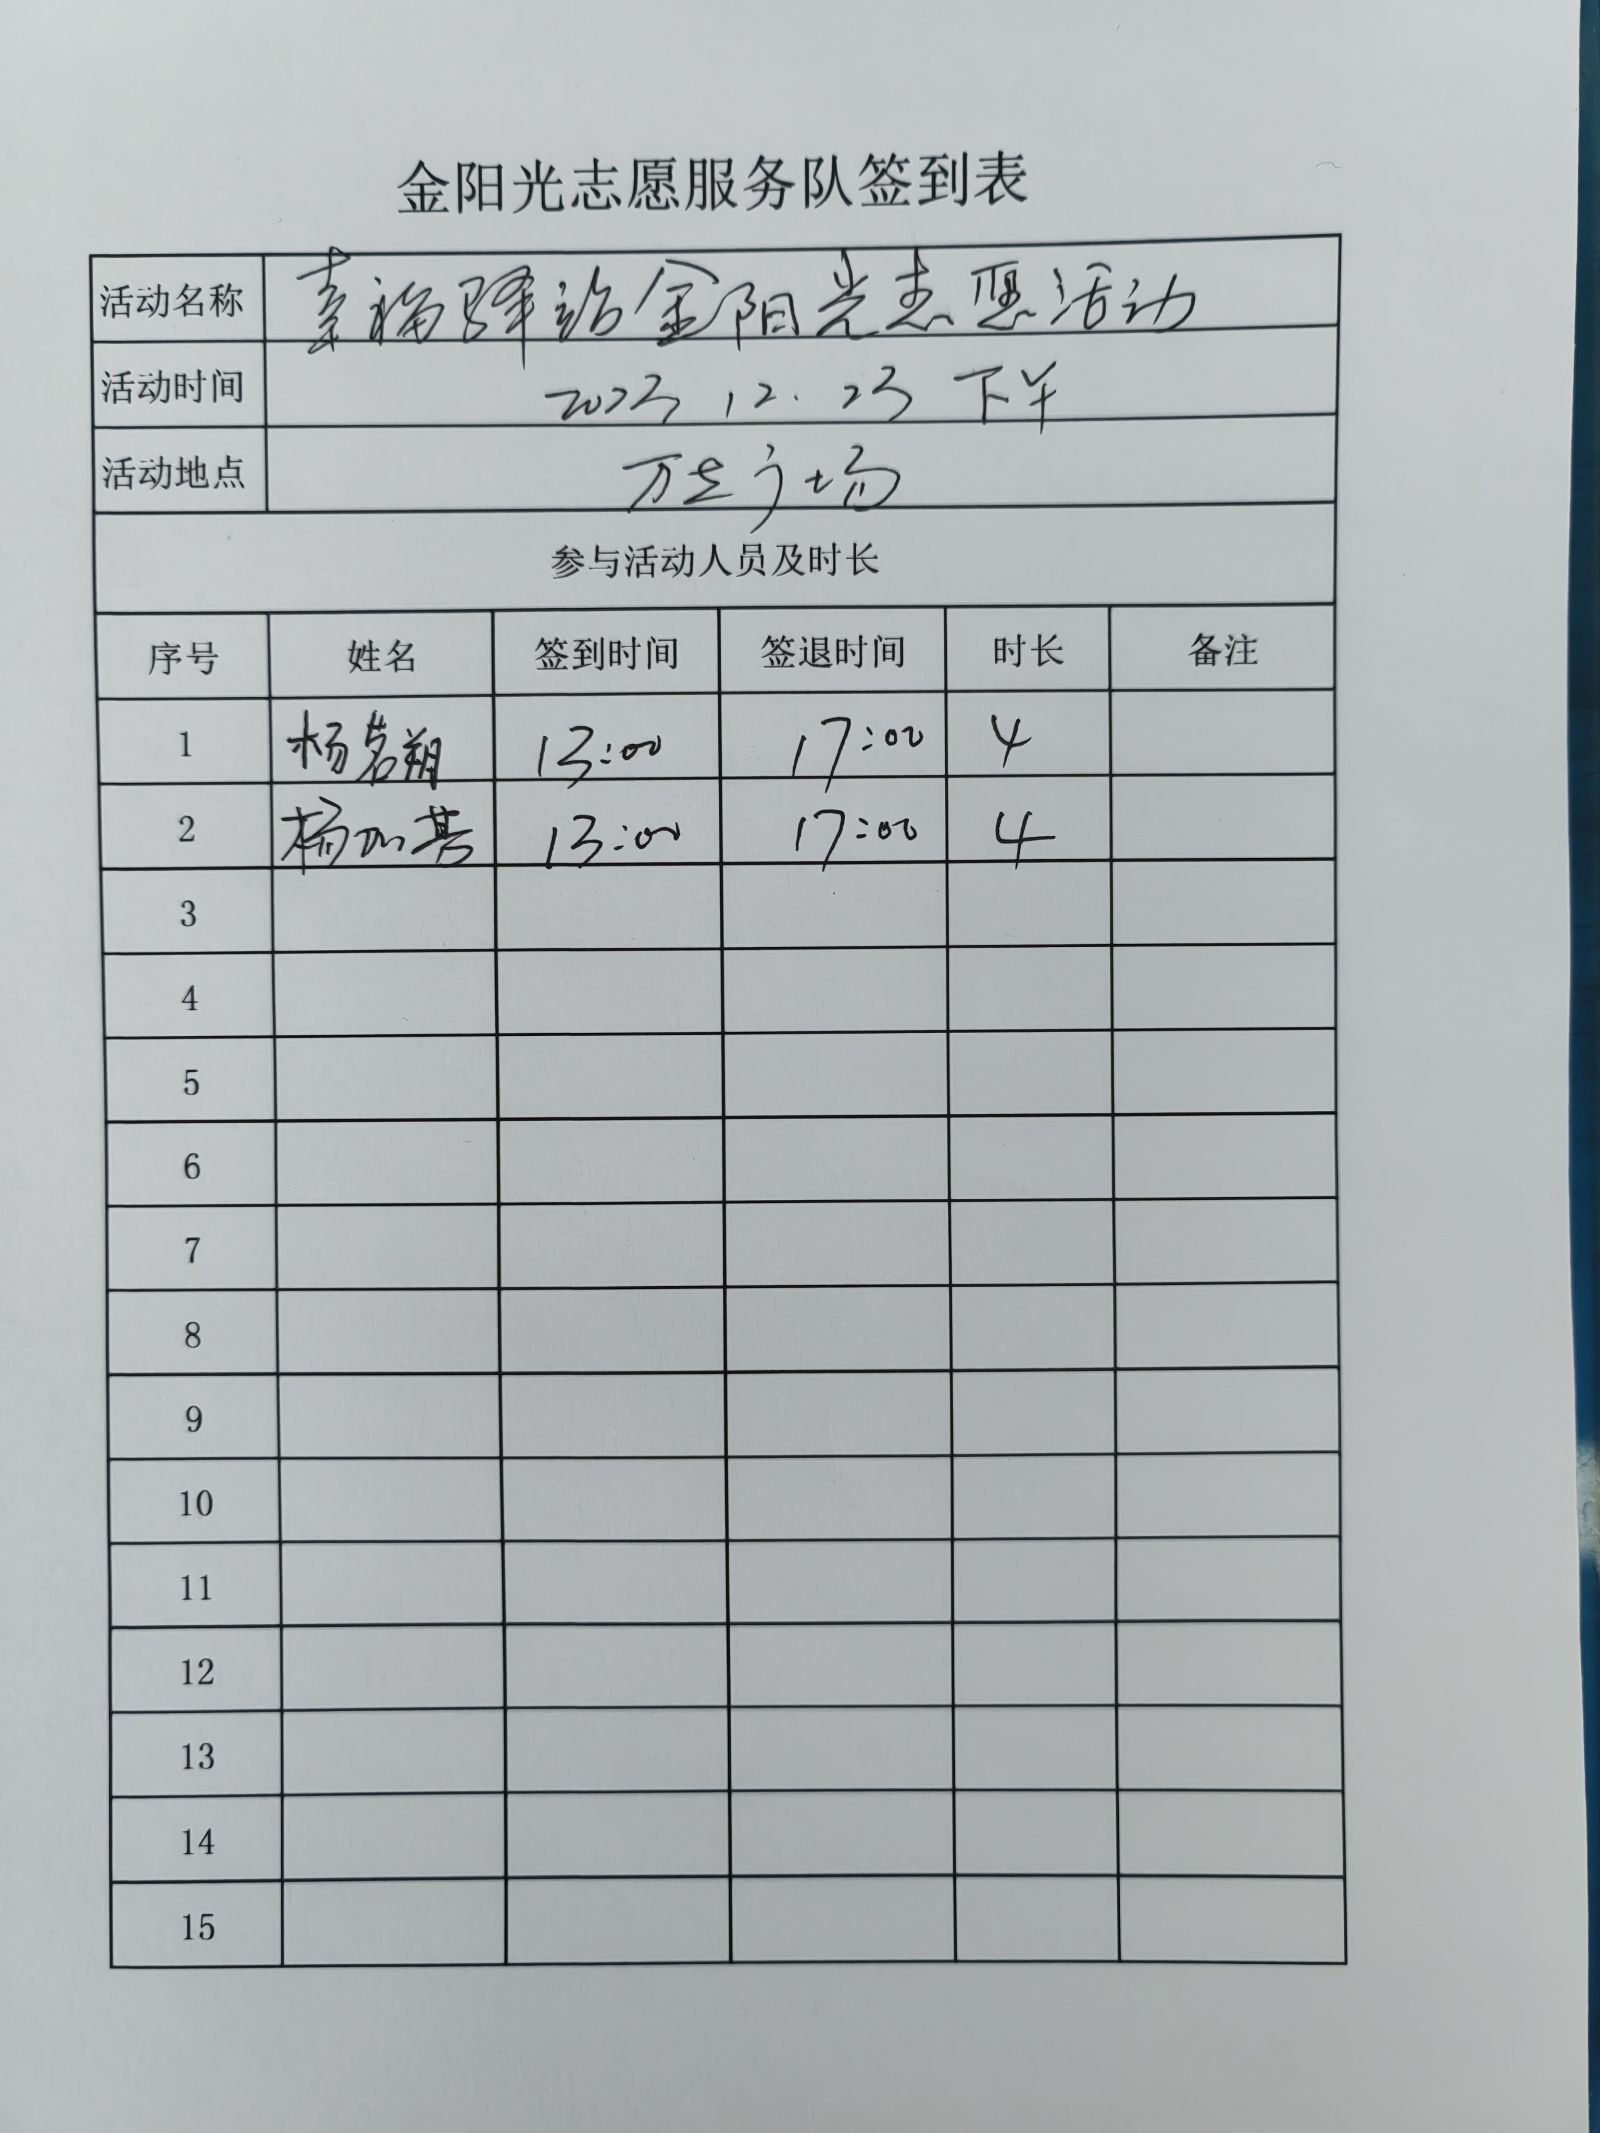 金阳光志愿服务队签到表
活动名称 幸福驿站金阳光志愿活动
活动时间 2023.12.23 下午
活动地点 万达广场
参与活动人员及时长
序号 姓名 签到时间 签退时间 时长 备注
1 杨茗翔 13:00 17:00 4
2 杨 13:00 17:00 4
3
4
5
6
7
8
9
10
11
12
13
14
15